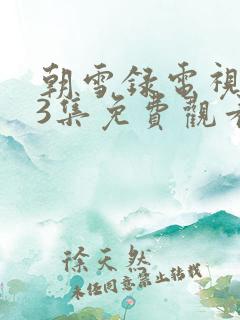 朝雪錄電視
3集免費觀看
徐天然
未经同意禁止转载